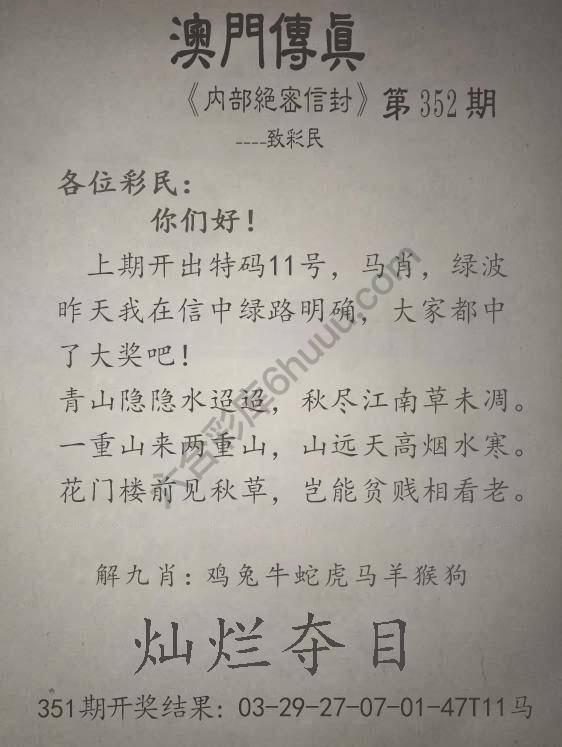 澳門傳眞
《内部絕密信封》第352期
----致彩民
各位彩民：
你们好！
上期开出特码11号，马肖，绿波
昨天我在信中绿路明确，大家都中
了大奖吧！
青山隐隐水迢迢，秋尽江南草未凋。
一重山来两重山，山远天高烟水寒。
花门楼前见秋草，岂能贫贱相看老。
六合彩库6huuu.com
解九肖：鸡兔牛蛇虎马羊猴狗
灿烂夺目
351期开奖结果：03-29-27-07-01-47T11马